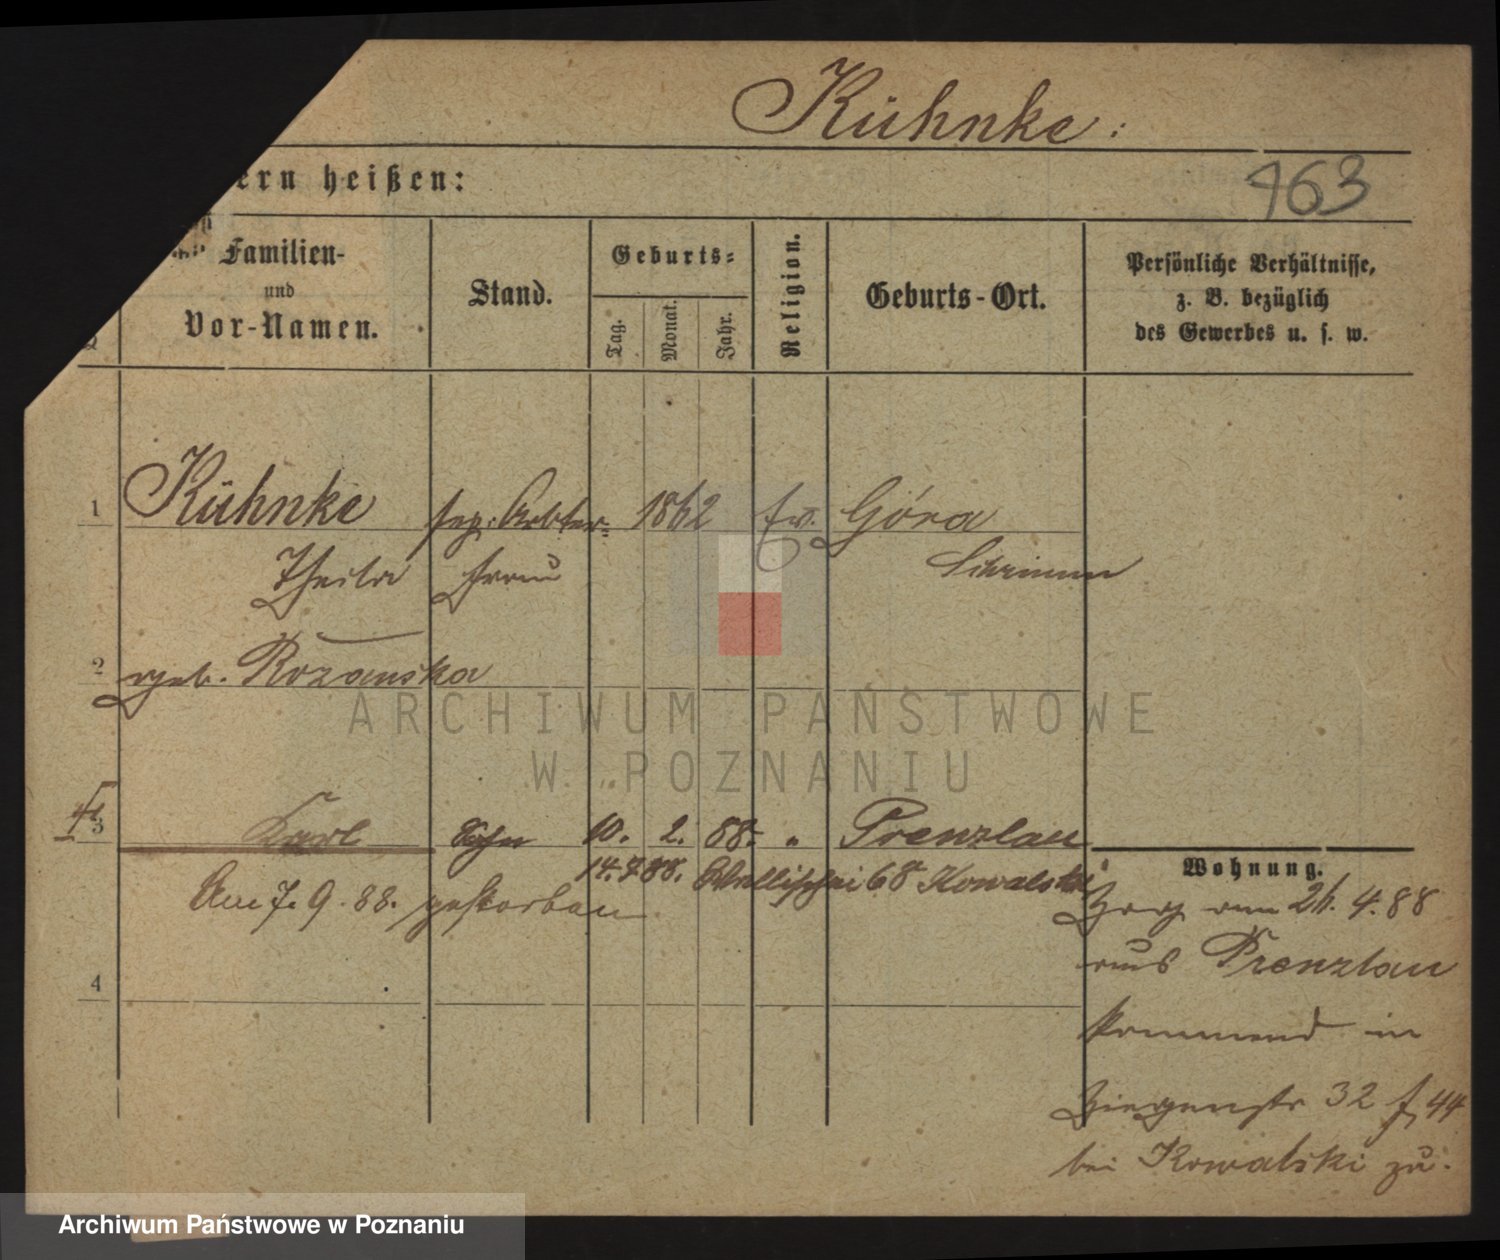 Kühnke:
463
ern heißen:
Familien-
und
Vor-Namen.
Stand.
Geburts-
Tag.
Monat.
Jahr.
Religion.
Geburts-Ort.
Persönliche Verhältnisse,
z. B. bezüglich
des Gewerbes u. s. w.
1 Kühnke sep. Arbter- 1862 Ev. Góra
Thecla frau Schrimm
2 geb. Rozanska
ARCHIWUM PAŃSTWOWE
W POZNANIU
3 Karl Sohn 10. 2. 88. " Prenzlau
Wohnung.
14.7.88. Wallischei 68 Kowalski
Am 7.9.88. gestorben.
Zog am 26.4.88
aus Prenzlau
4
kommend in
Ziegenstr 32 f, 44
bei Kowalski zu.
Archiwum Państwowe w Poznaniu